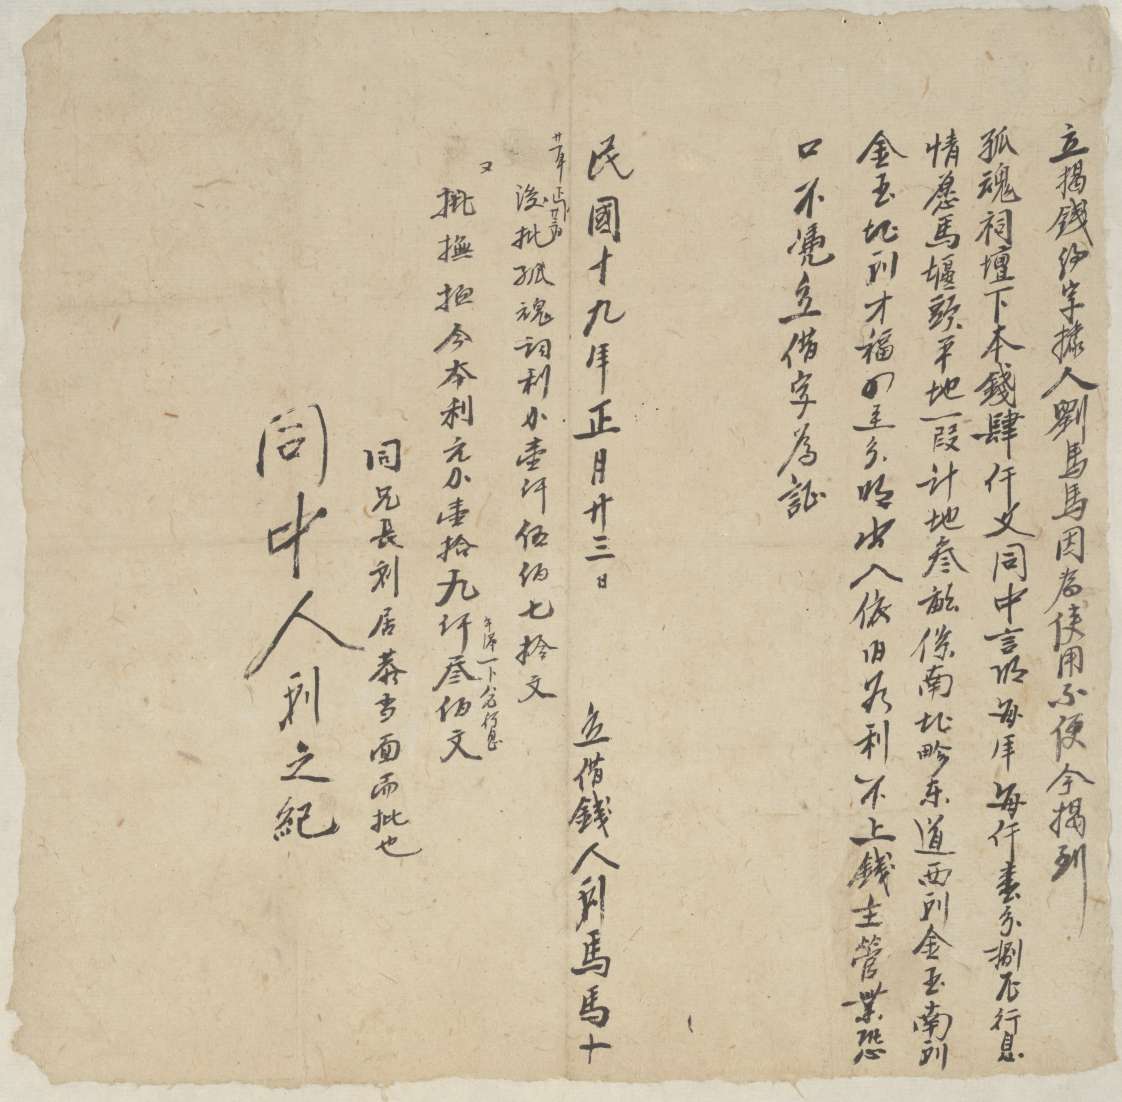 立揭錢約字據人劉馬馬因為使用不便今揭到
孤魂祠壇下本錢肆仟文同中言明每年每仟壹分捌厘行息
情愿馬堰頭平地一段計地叁畝係南北畛東道西刘金玉南刘
金玉北刘才福四至分明出入依旧若利不上錢主管業恐
口不凭立借字為証
民國十九年正月廿三日 立借錢人刘馬馬十
廿一年正月廿
後批孤魂祠利小壹仟伍佰七拾文
又
批撫揭今本利元小壹拾九仟叁佰文
同兄長利居恭当面而批也
同中人刘之紀